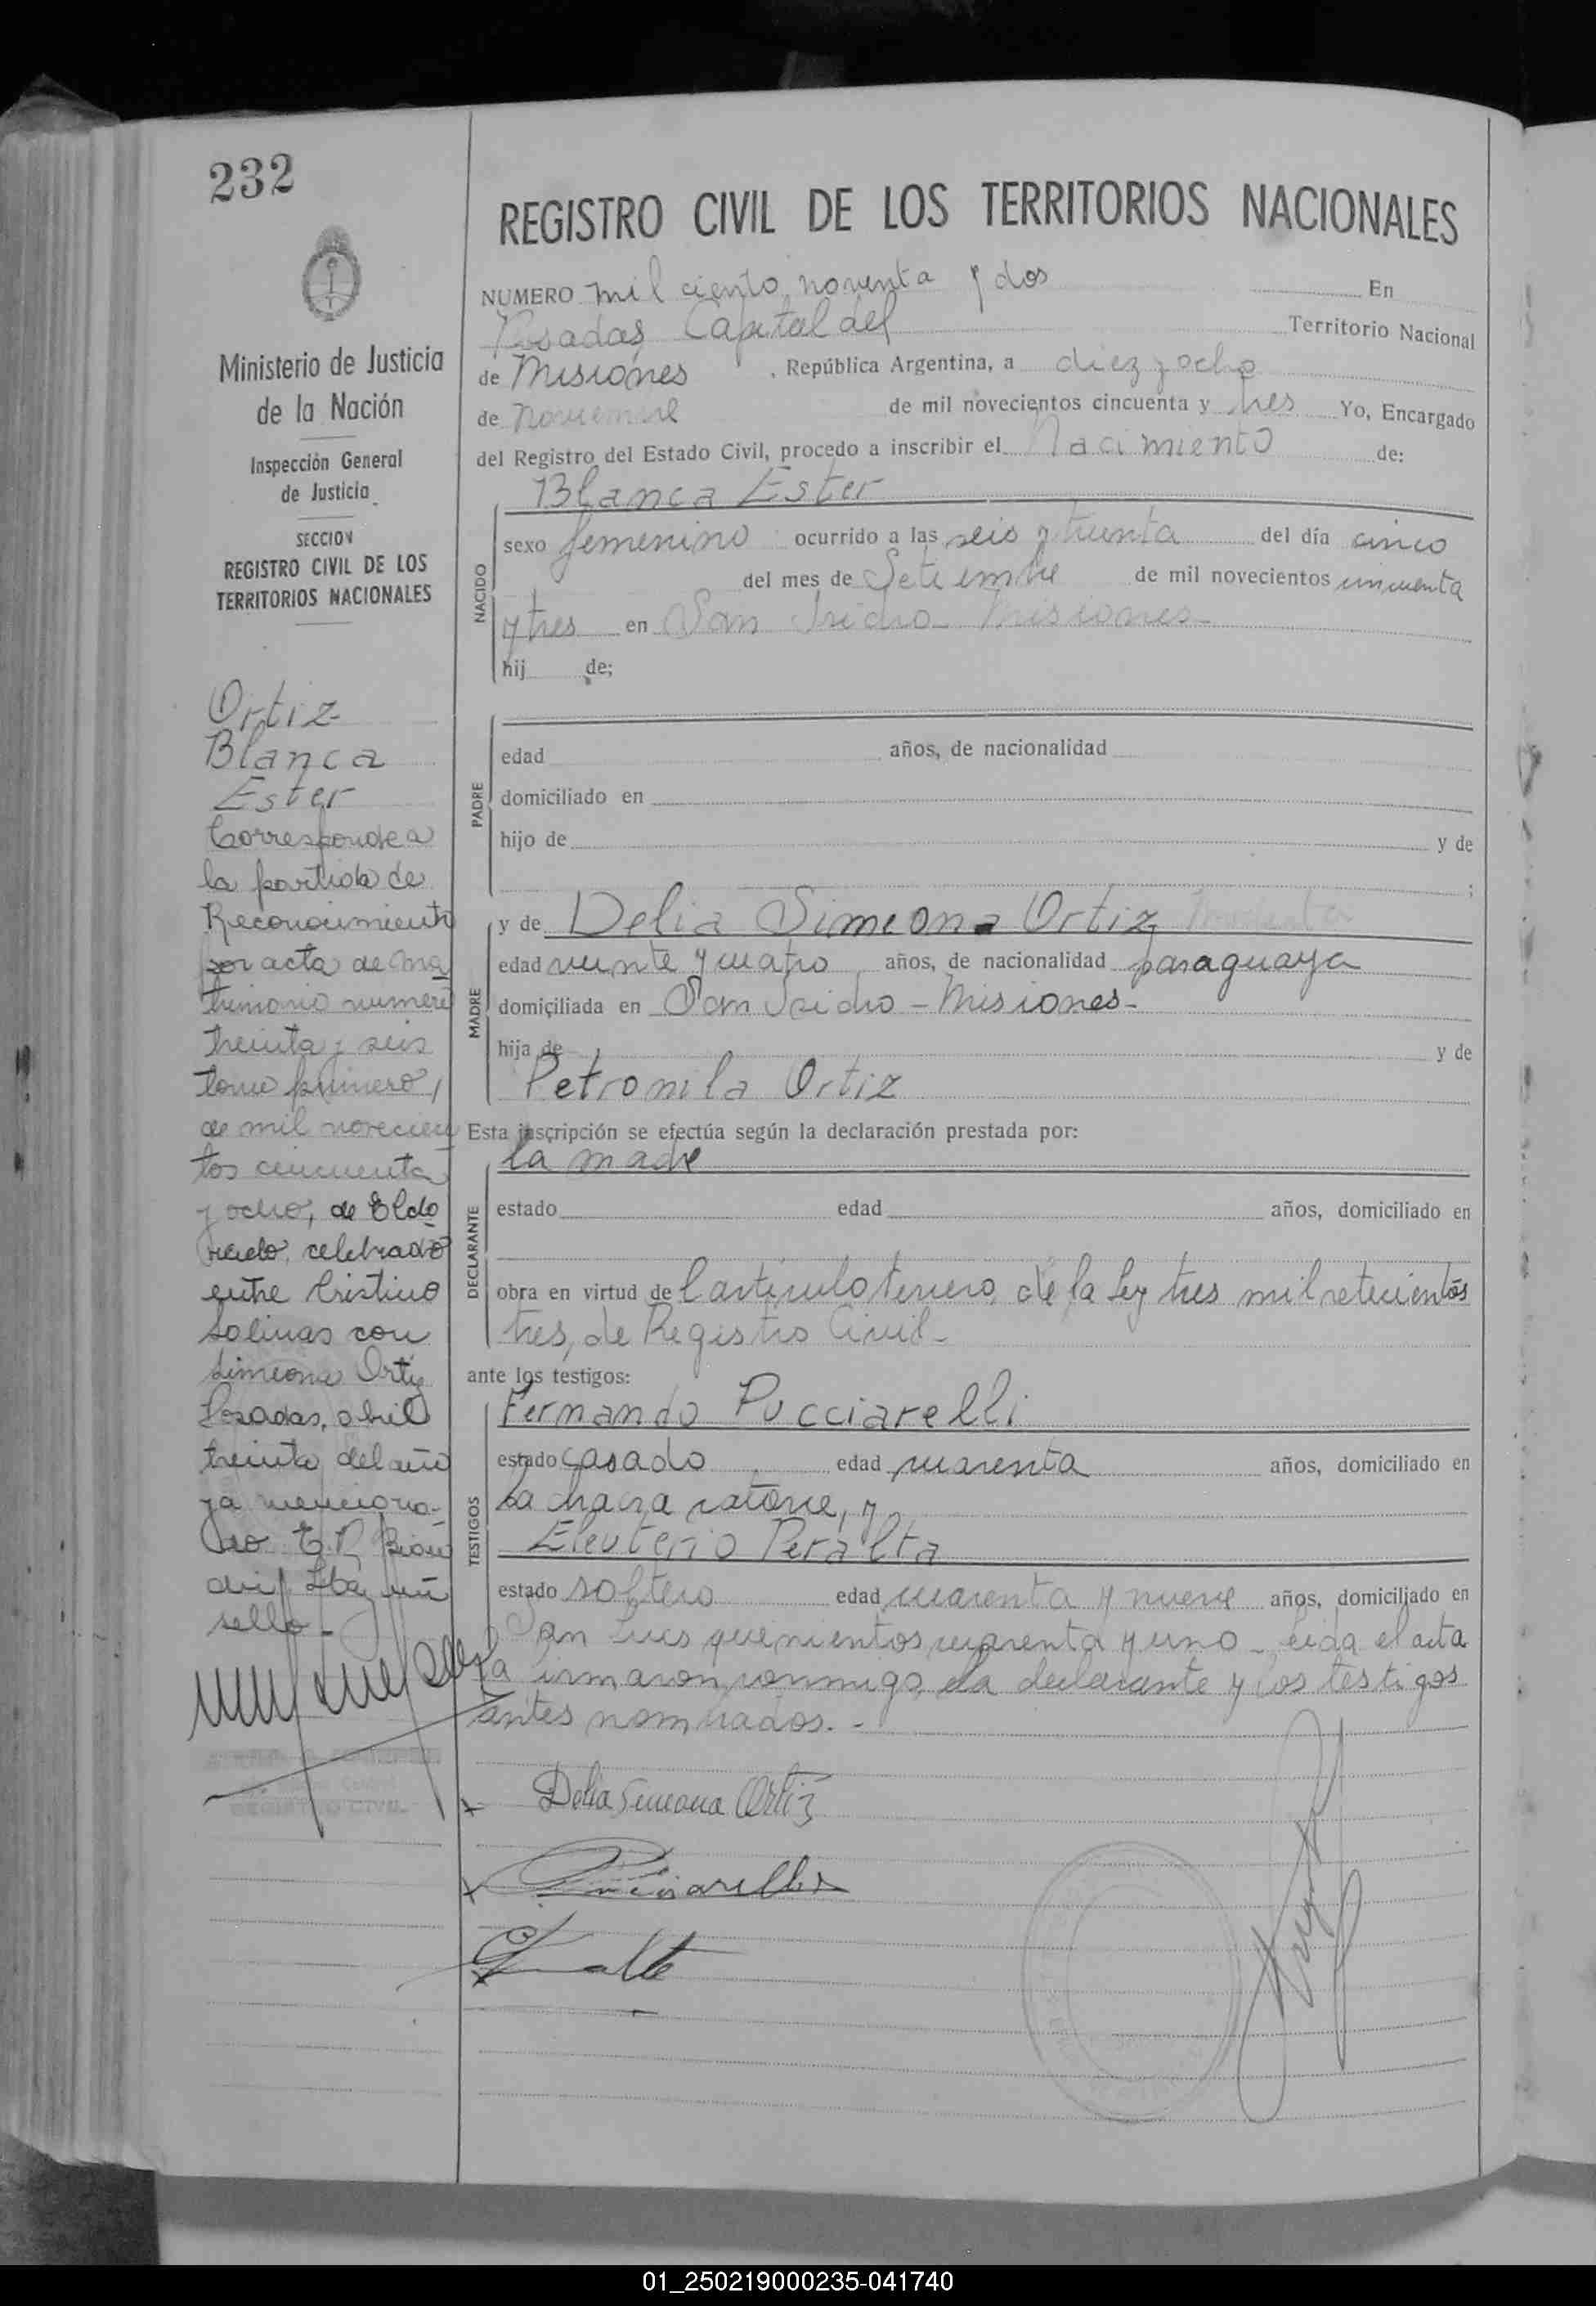 232
Ministerio de Justicia
de la Nación
Inspección General
de Justicia
SECCION
REGISTRO CIVIL DE LOS
TERRITORIOS NACIONALES
Ortiz
Blanca
Ester
Corresponde a
la partida de
Reconocimiento
por acta de ma
trimonio numero
treinta y seis
tomo primero,
de mil novecien
tos cincuenta
y ocho, de Eldo
rado, celebrado
entre Cristino
Salinas con
Simeona Ortiz
Posadas, abril
treinta del año
ya menciona-
do
sello-
REGISTRO CIVIL
REGISTRO CIVIL DE LOS TERRITORIOS NACIONALES
NUMERO mil ciento noventa y dos En
Posadas Capital del Territorio Nacional
de Misiones, República Argentina, a diez y ocho
de noviembre de mil novecientos cincuenta y tres Yo, Encargado
del Registro del Estado Civil, procedo a inscribir el Nacimiento de:
Blanca Ester
NACIDO
sexo femenino ocurrido a las seis y treinta del día cinco
del mes de Setiembre de mil novecientos cincuenta
y tres en San Isidro - Misiones-
hij de;
PADRE
edad años, de nacionalidad
domiciliado en
hijo de y de
;
MADRE
y de Delia Simeona Ortiz
edad veinte y cuatro años, de nacionalidad paraguaya
domiciliada en San Isidro - Misiones-
hija de y de
Petronila Ortiz
Esta inscripción se efectúa según la declaración prestada por:
la madre
DECLARANTE
estado edad años, domiciliado en
obra en virtud del artículo tercero, de la ley tres mil setecientos
tres, de Registro Civil-
ante los testigos:
TESTIGOS
Fernando Pucciarelli
estado casado edad cuarenta años, domiciliado en
La chacra catorce, y
Eleuterio Peralta
estado soltero edad cuarenta y nueve años, domiciliado en
San Luis quinientos cuarenta y uno - Leida el acta
la firmaron conmigo, la declarante y los testigos
antes nombrados.-
Delia Simeona Ortiz
Pucciarelli
01_250219000235-041740